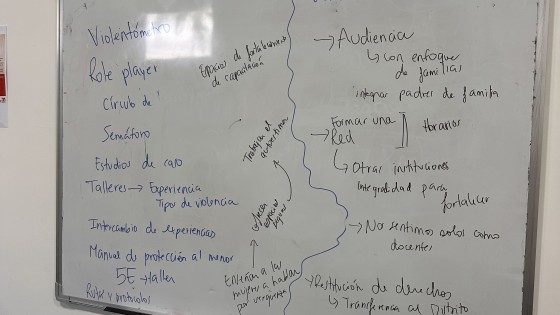 Violentómetro
Role player
Círculo de
Semáforo
Estudios de caso
Talleres → Experiencia
Tipo de violencia
Intercambio de experiencias
Manual de protección al menor
5E → taller
Rutas y protocolos
Espacios de fortalecimiento
de capacitación
Trabajar el
autoestima
espacios
Enseñan a las
mujeres a hablar
por verguenza
→ Audiencia
↳ con enfoque
de familias
integrar padres de familia
→ Formar una
Red
Horarios
↳ Otras instituciones
Integralidad para
fortalecer
→ No sentirnos solos como
docentes
→ Restitución de derechos
↳ Transferencia al Distrito